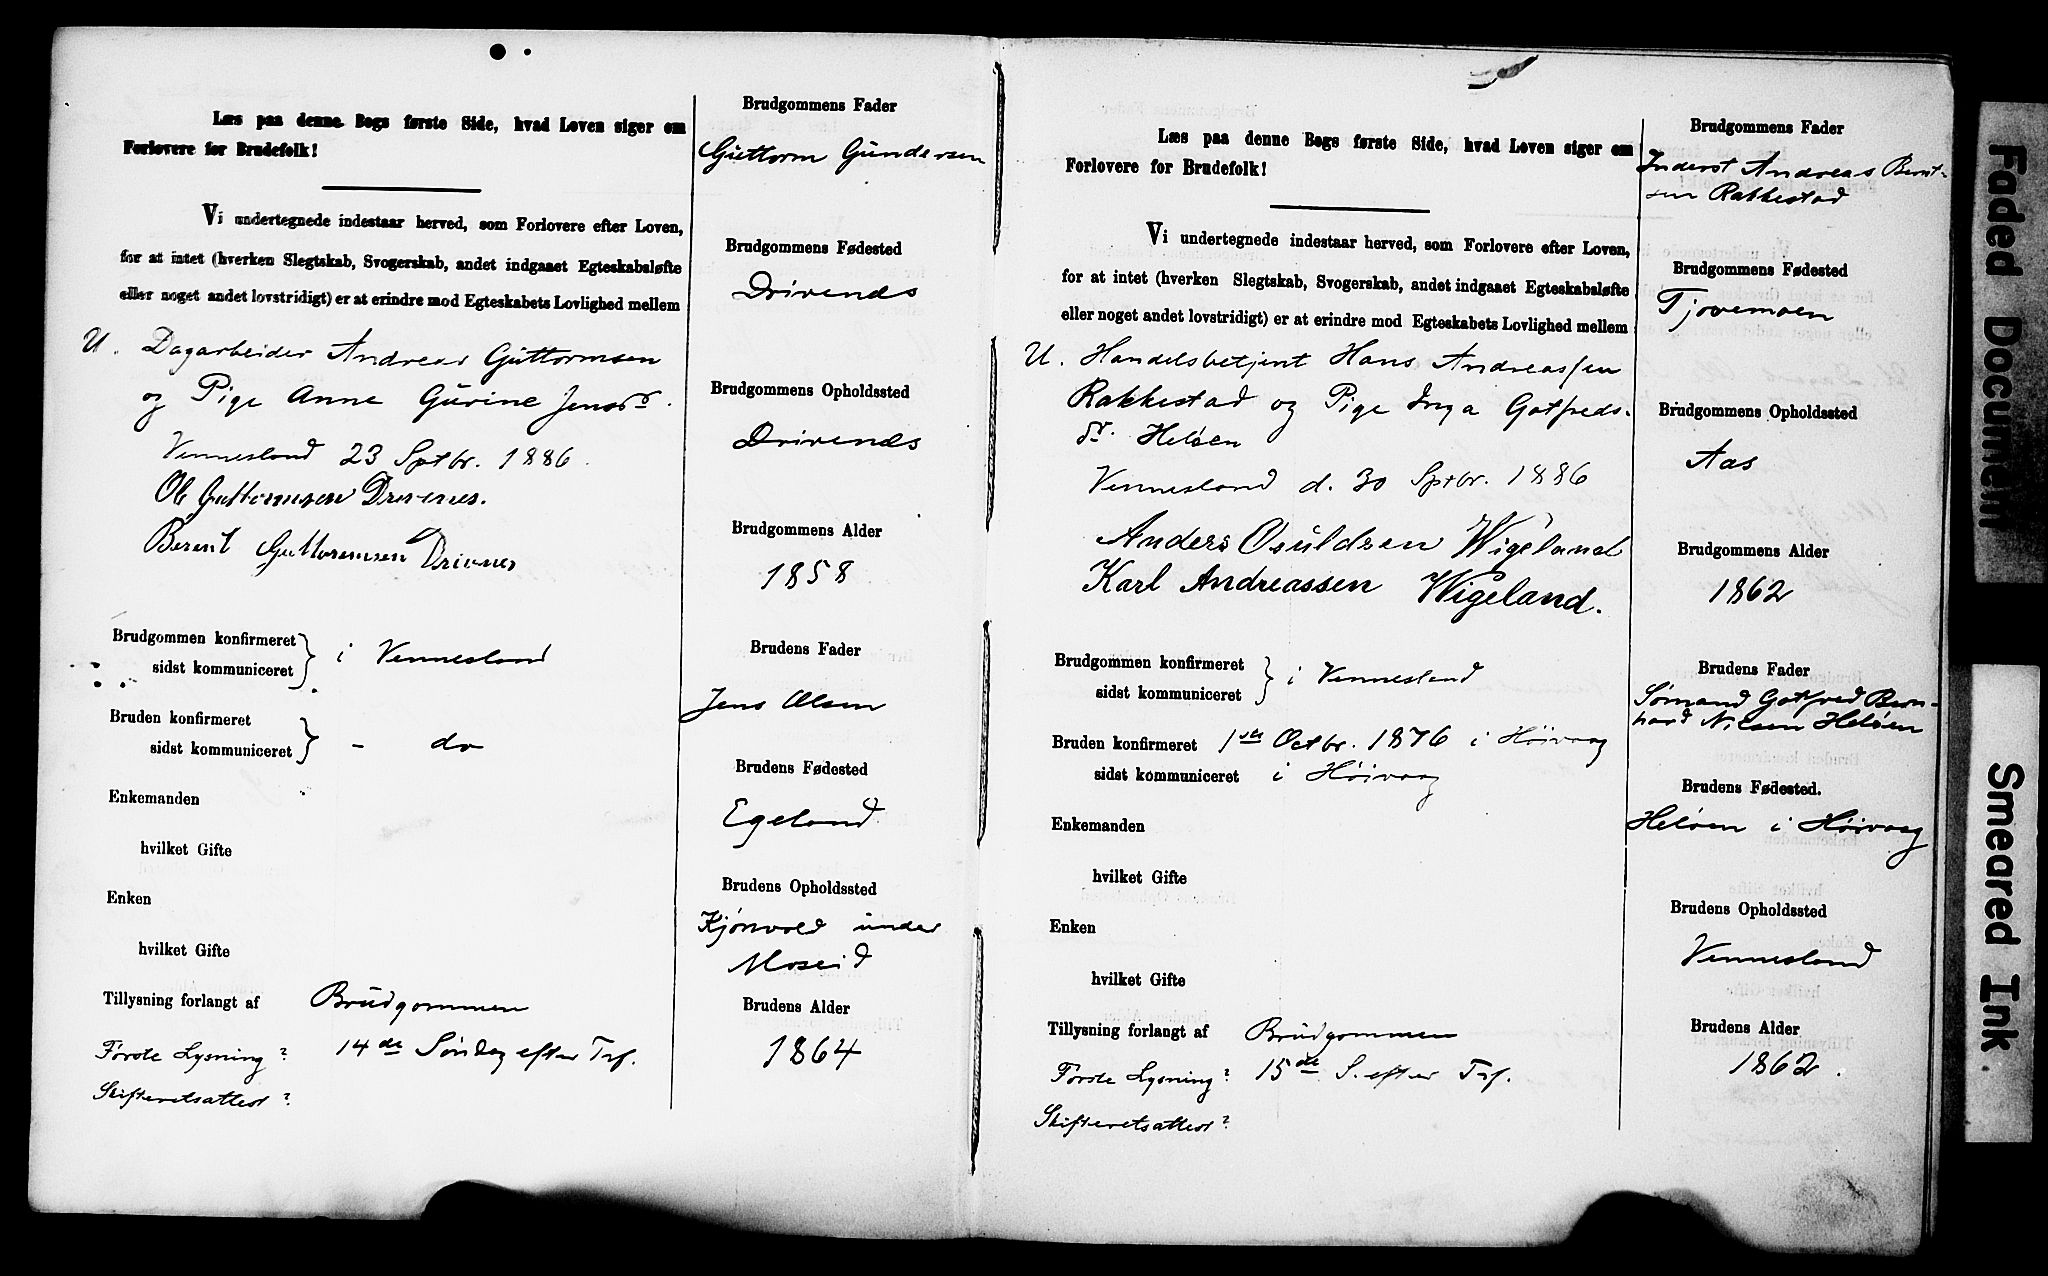 Læs paa denne Bogs første Side, hvad Loven siger om
Forlovere for Brudefolk!
Vi undertegnede indestaar herved, som Forlovere efter Loven,
for at intet (hverken Slegtskab, Svogerskab, andet indgaaet Egteskabsløfte
eller noget andet lovstridigt) er at erindre mod Egteskabets Lovlighed mellem
U. Dagarbeider Andreas Guttormsen
og Pige Anne Gurine Jensdr.
Vennesland 23 Sptbr. 1886.
Ole Guttormsen Drivenes.
Berent Guttormsen Drivnes
Brudgommen konfirmeret
sidst kommuniceret } i Vennesland
Bruden konfirmeret
sidst kommuniceret } - do
Enkemanden
hvilket Gifte
Enken
hvilket Gifte
Tillysning forlangt af Brudgommen
Første Lysning? 14de Søndag efter Trf.
Skifteretsattest?
Brudgommens Fader
Guttorm Gundersen
Brudgommens Fødested
Drivends
Brudgommens Opholdssted
Drivends
Brudgommens Alder
1858
Brudens Fader
Jens Olsen
Brudens Fødested
Egeland
Brudens Opholdssted
Kjønvold under
Moseid
Brudens Alder
1864
Læs paa denne Bogs første Side, hvad Loven siger om
Forlovere for Brudefolk!
Vi undertegnede indestaar herved, som Forlovere efter Loven,
for at intet (hverken Slegtskab, Svogerskab, andet indgaaet Egteskabsløfte
eller noget andet lovstridigt) er at erindre mod Egteskabets Lovlighed mellem
U. Handelsbetjent Hans Andreassen
Rakkestad og Pige Inga Gotfreds-
dr. Heløen
Vennesland d. 30 Sptbr. 1886
Anders Osuldsen Wigeland
Karl Andreassen Wigeland.
Brudgommen konfirmeret
sidst kommuniceret } i Vennesland
Bruden konfirmeret 1ste Octbr. 1876 i Høivaag
sidst kommuniceret i Høivaag
Enkemanden
hvilket Gifte
Enken
hvilket Gifte
Tillysning forlangt af Brudgommen
Første Lysning? 15de S. efter Trf.
Skifteretsattest?
Brudgommens Fader
Inderst Andreas Bernt-
sen Rakkestad
Brudgommens Fødested
Tjovemoen
Brudgommens Opholdssted
Aas
Brudgommens Alder
1862
Brudens Fader
Sømand Gotfred Bern-
hard Nilsen Heløen
Brudens Fødested.
Heløen i Høivaag
Brudens Opholdssted
Vennesland
Brudens Alder
1862.
Faded Document
Smeared Ink.